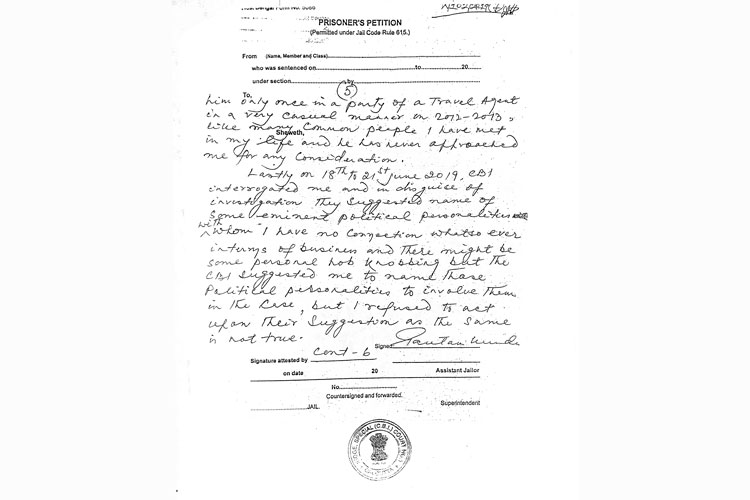 PRISONER'S PETITION
(Permitted under Jail Code Rule 615.)
From (Name, Member and Class)
who was sentenced on to 20
under section by
(5)
To,
him only once in a party of a Travel Agent
in a very casual manner on 2012-2013,
like many common people I have met
Sheweth,
in my life and he has never approached
me for any consideration.
Lastly on 18th to 21st June 2019, CBI
interrogated me and in disguise of
investigation they suggested name of
some eminent political personalities
with whom I have no connection whatso ever
in terms of business and there might be
some personal hob knobbing but the
CBI suggested me to name those
Political personalities to involve them
in the case, but I refused to act
upon their suggestion as the same
is not true.
Signed
Cont-6
Signature attested by
on date 20 Assistant Jailor
No.
Countersigned and forwarded.
JAIL. Superintendent
SPECIAL (C.B.I.) COURT